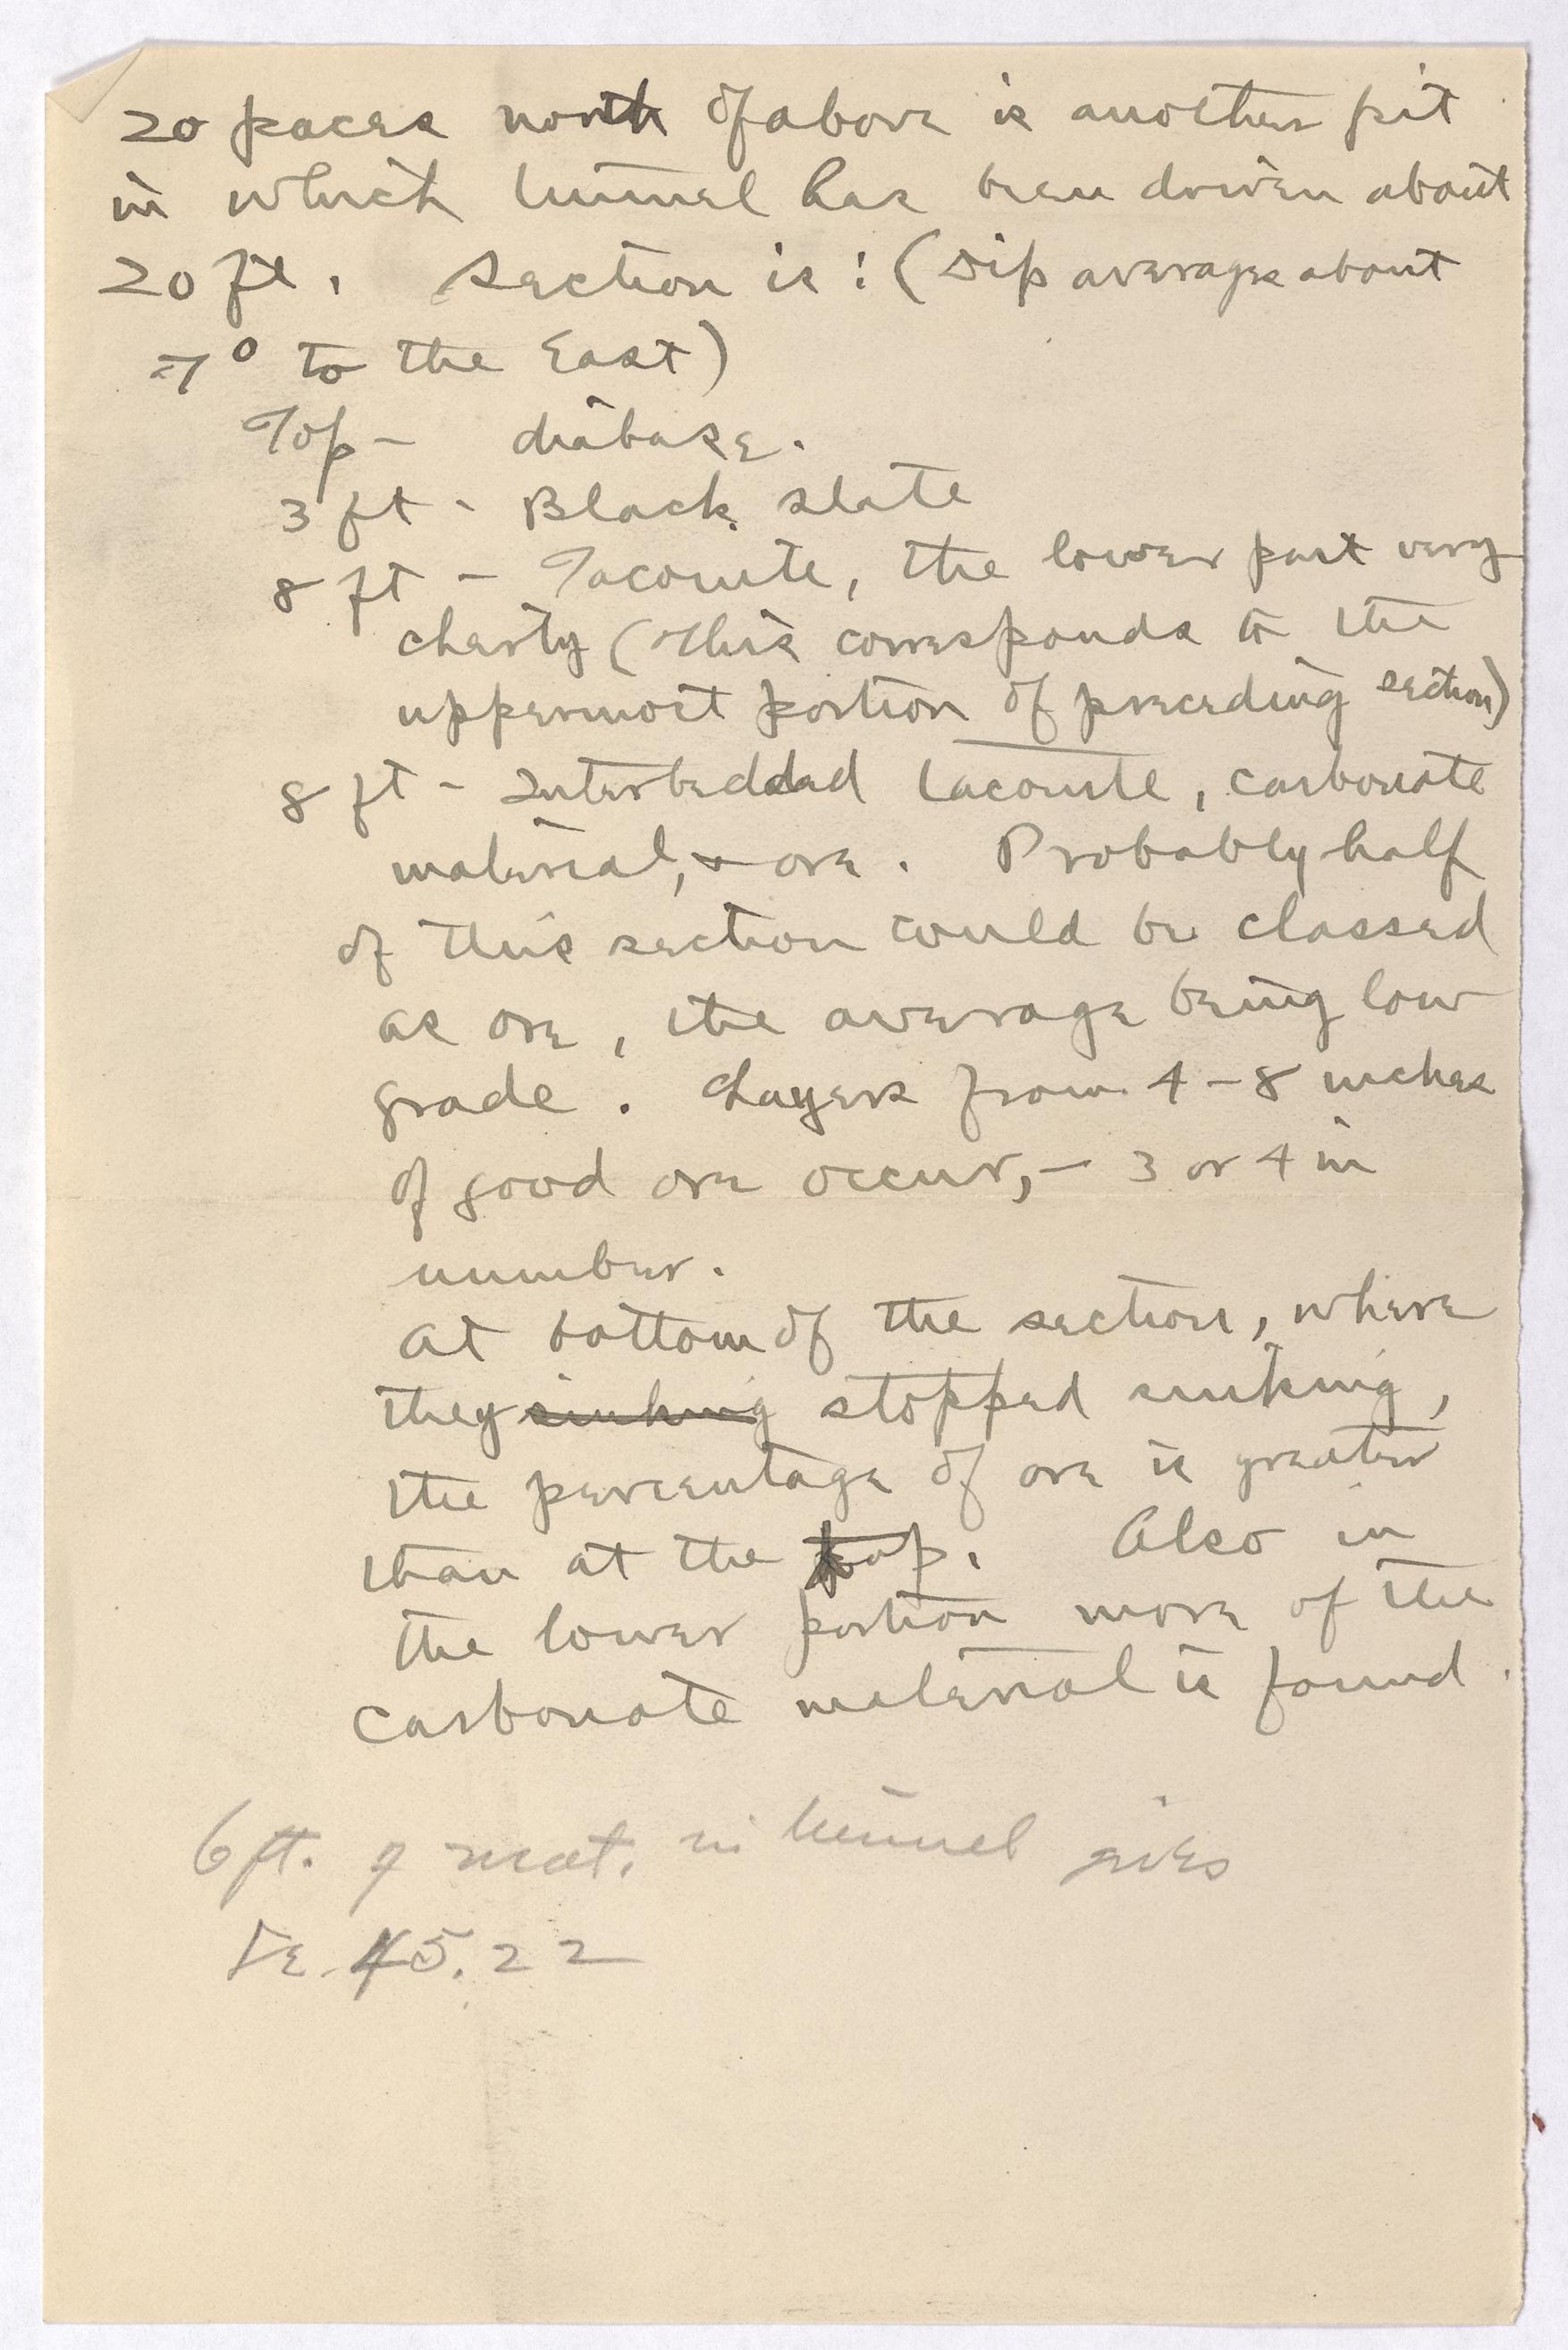 20 paces north of above is another pit
in which tunnel has been driven about
20 ft. Section is: (Dip averages about
7° to the East)
Top - diabase.
3 ft - Black slate
8 ft - Taconite, the lower part very
cherty (This corresponds to the
uppermost portion of preceding section)
8 ft - Interbedded taconite, carbonate
material, & ore. Probably half
of this section could be classed
as ore, the average being low
grade. Layers from 4 - 8 inches
of good ore occur, - 3 or 4 in
number.
At bottom of the section, where
they sinking stopped sinking,
the percentage of ore is greater
than at the top. Also in
the lower portion more of the
carbonate material is found.
6 ft. of mat. in tunnel gives
Fe. 45.22